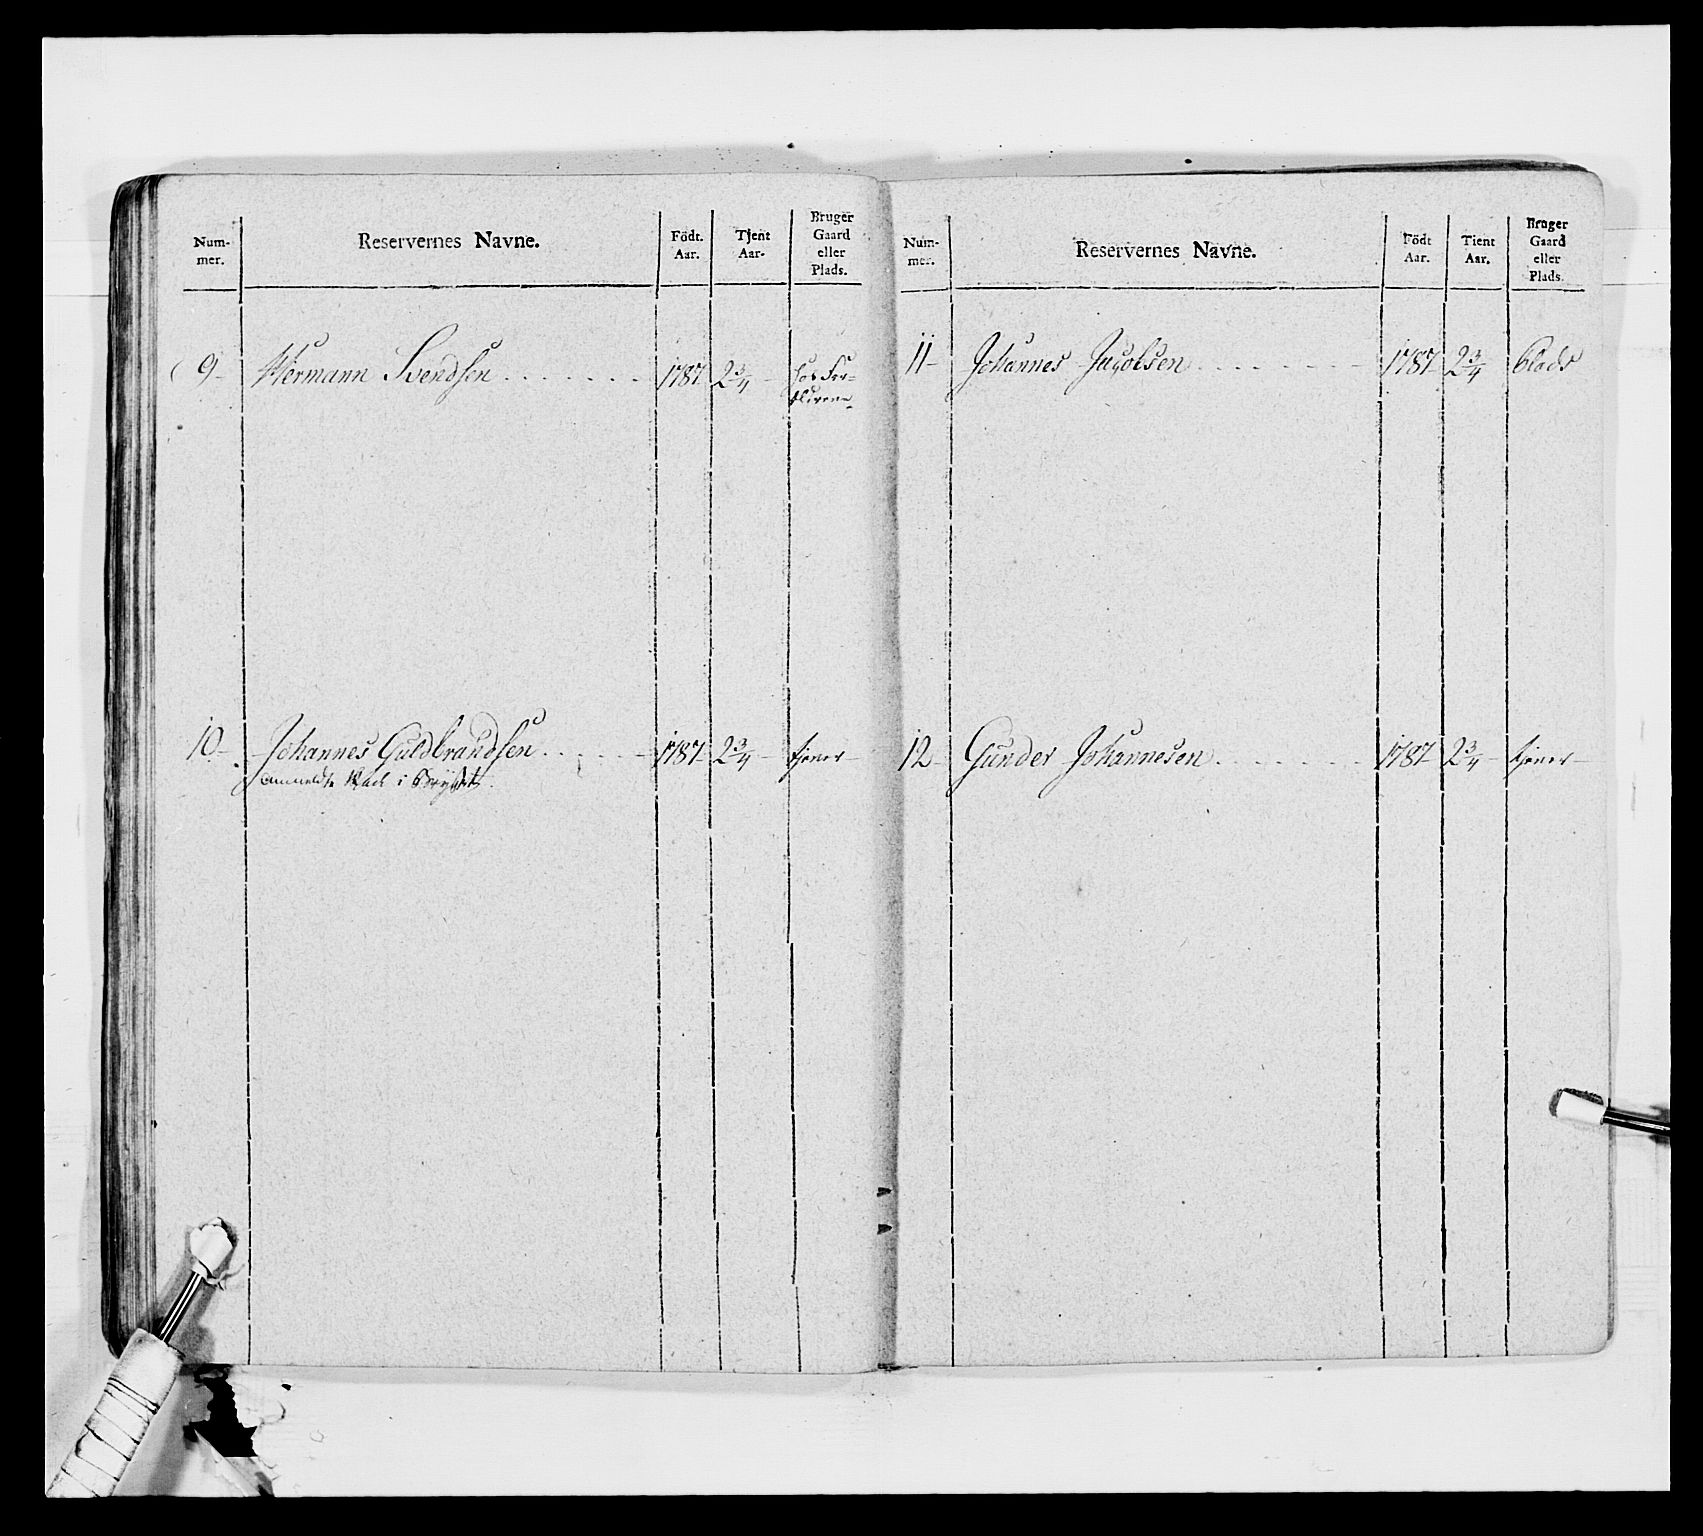 Num-
mer.
Reservernes Navne.
Födt.
Aar.
Tjent
Aar.
Bruger
Gaard
eller
Plads.
9- Hermann Svendsen . . . . . . . 1787 2 3/4 - hos For-
ældrene
10- Johannes Guldbrandsen . . . . . 1787 2 3/4 - tjener -
anmeldte i Brystet.
Num-
mer.
Reservernes Navne.
Födt
Aar.
Tient
Aar.
Bruger
Gaard
eller
Plads.
11- Johannes Jacobsen . . . . . . . 1787 2 3/4 Plads
12- Gunder Johannesen . . . . . . . 1787 2 3/4 - tjener -